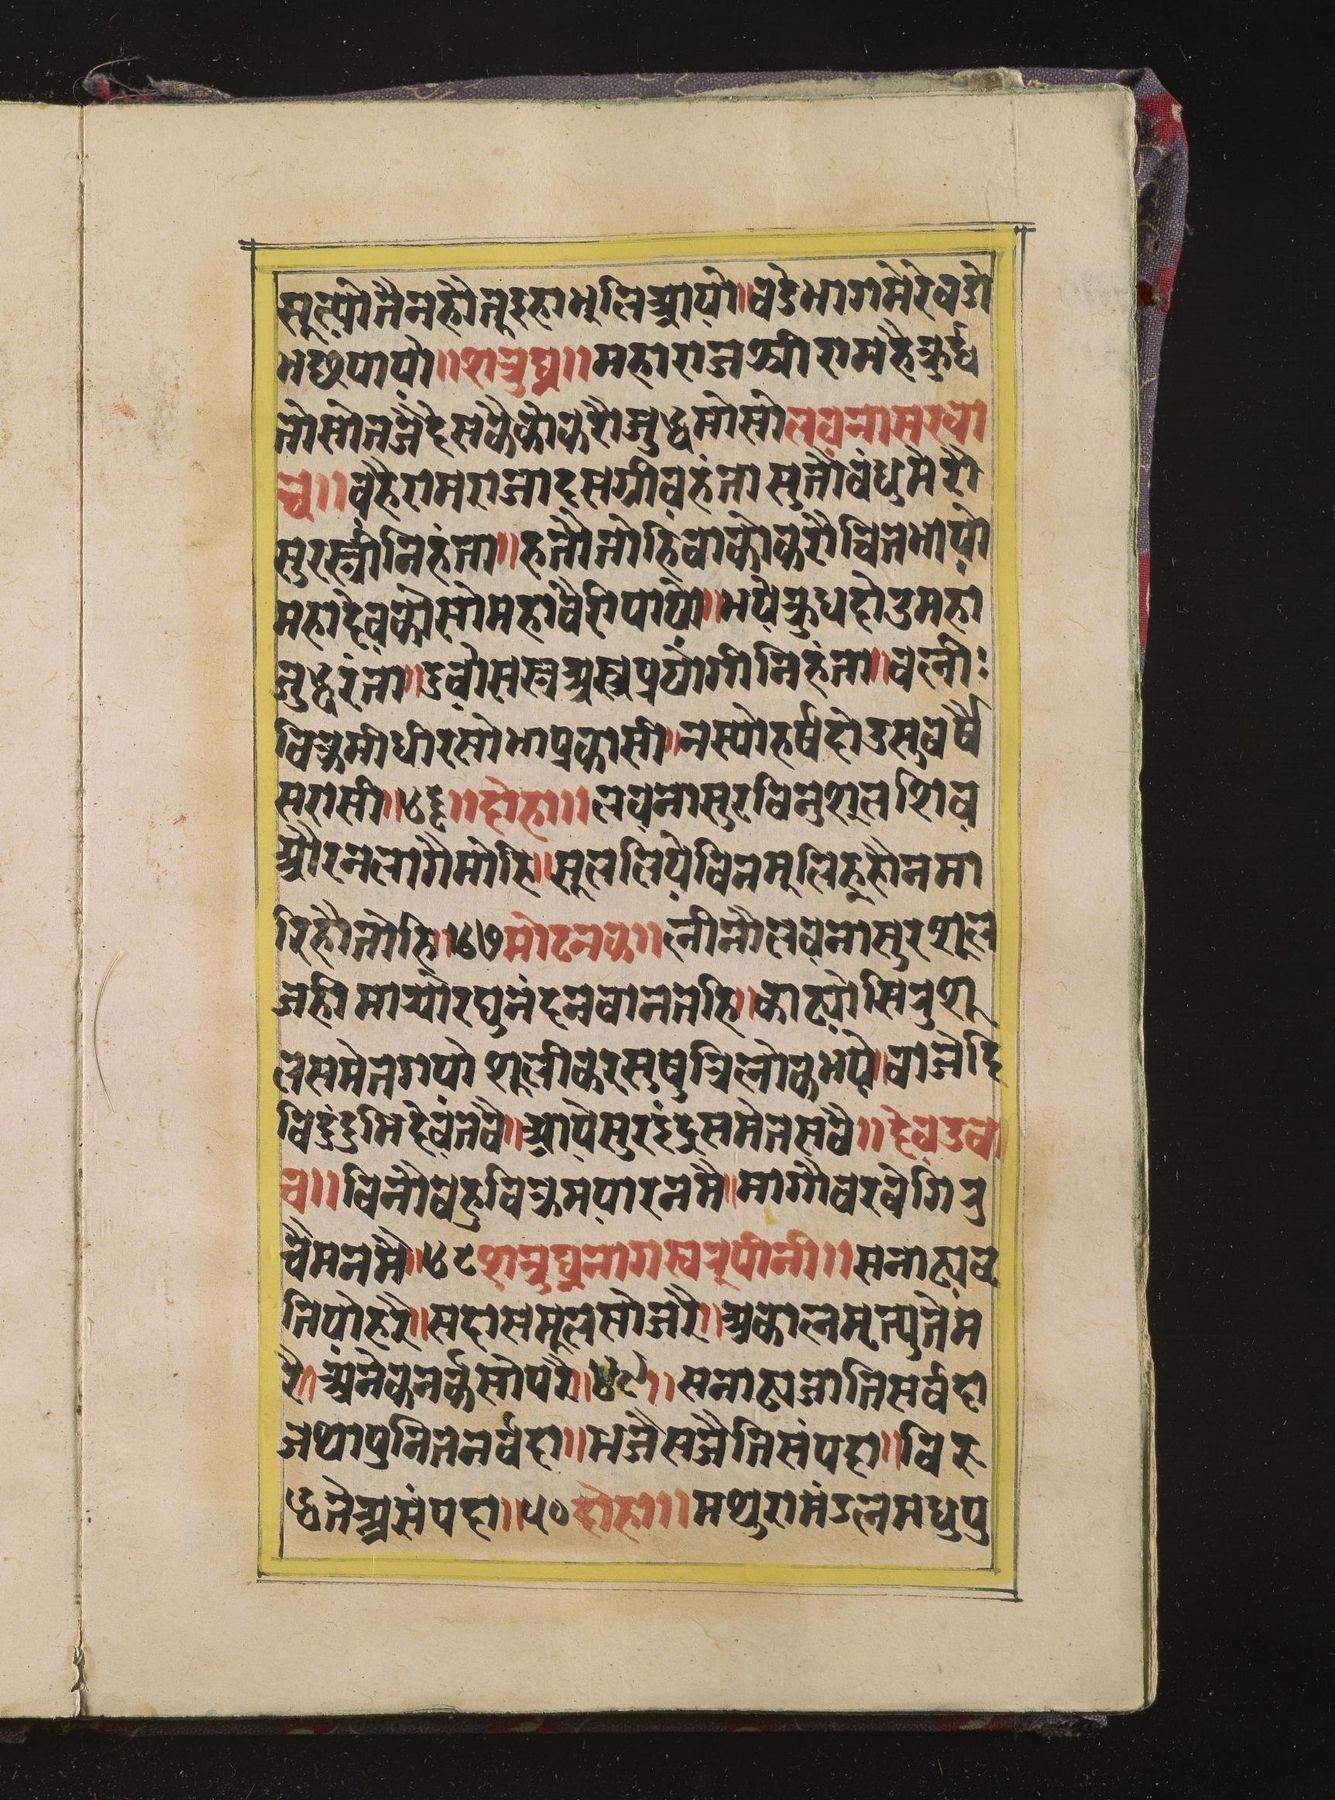 सूल्यौनैनहौतूइहाभूलिआयो॥वडेभागमेरेवडो
भछपायो॥शत्रुघ्न॥महाराजश्रीरामहैक्रुध
तोसोतजैदेसकैकोकरौजुद्धमोसोलवनासरवा
च॥वहैरामराजादसग्रीवहंतासुतौवंधुमेरो
सुरस्त्रीनिहंता॥हतौतोहिवाकोकरौचितभायो
महादेवकोसोमहावैरीपायौ॥भयेक्रुधदोउमहा
जुद्धरंता॥डवोसस्त्रअस्त्रप्रयोगीनिहंता॥वली:
विक्रमीधीरसोभाप्रकासी॥नस्योहर्षदोउसुवर्षे
सरासी॥४६॥दोहा॥लवनासुरविनुशूलशिव
औरनलागैमोहि॥सूललियेविनमूलिहूहौनमा
रिहौतोहि॥४७मोटनक॥लीनौलवनासुरशूल
जहीमार्यौरघुनंदनवानतही॥काट्यौसिरुशू
लसमेतगयोशूलीकरसुषत्रिलोकभये॥वाजेदि
विदुंदुभिदेवतवै॥आयेसुरइंद्रसमेतसवै॥देवउवा
च॥विनौवहुविक्रमपारनमै॥मागौवरवेगिरु
चैमनमै॥४८शत्रुघ्ननागस्वरूपीनी॥सनाढ्यवृ
तियोहरै॥सदासमूलसोजरै॥अकालमृत्युतेंम
रै॥अनेकनर्कसोपरै॥४९॥सनाढ्यजातिसर्वदा
जथापुनितनर्वदा॥भजैसजैतिसंपदा॥विरु
द्धतेअसंपदा॥५०दोहा॥मथुरामंडलमधुपु